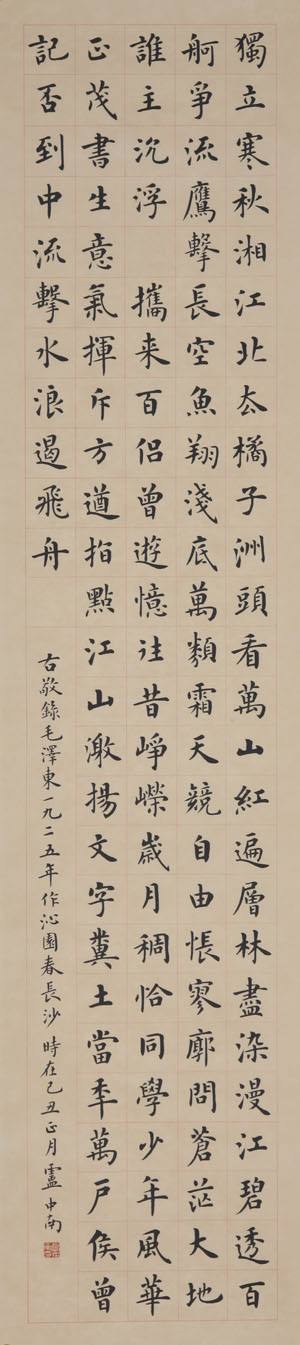 獨立寒秋湘江北去橘子洲頭看萬山紅遍層林盡染漫江碧透百
舸爭流鷹擊長空魚翔淺底萬類霜天競自由悵寥廓問蒼茫大地
誰主沉浮 攜来百侶曾遊憶往昔崢嶸歲月稠恰同學少年風華
正茂書生意氣揮斥方遒指點江山激揚文字糞土當年萬戶侯曾
記否到中流擊水浪遏飛舟
右敬錄毛澤東一九二五年作沁園春長沙 時在己丑正月 盧中南